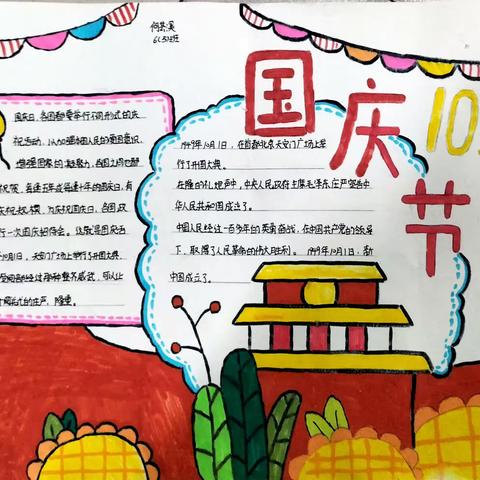 何芸溪
6(5)班
国庆节
10.
国庆日,各国都要举行不同形式的庆
祝活动,以加强本国人民的爱国意识,
增强国家的凝聚力,各国之间也都
祝贺,每逢五年或每逢十年的国庆日,有
庆祝规模,为庆祝国庆日,各国政
行一次国庆招待会。
年10月1日,天安门广场上举行了开国大典,
的庄严、隆重。
1949年10月1日,在首都北京天安门广场上举
行了开国大典。
在隆隆的礼炮声中,中央人民政府主席毛泽东庄严宣告中
华人民共和国成立了。
中国人民经过一百多年的英勇奋战,在中国共产党的领导
下,取得了人民革命的伟大胜利。1949年10月1日,新
中国成立了。